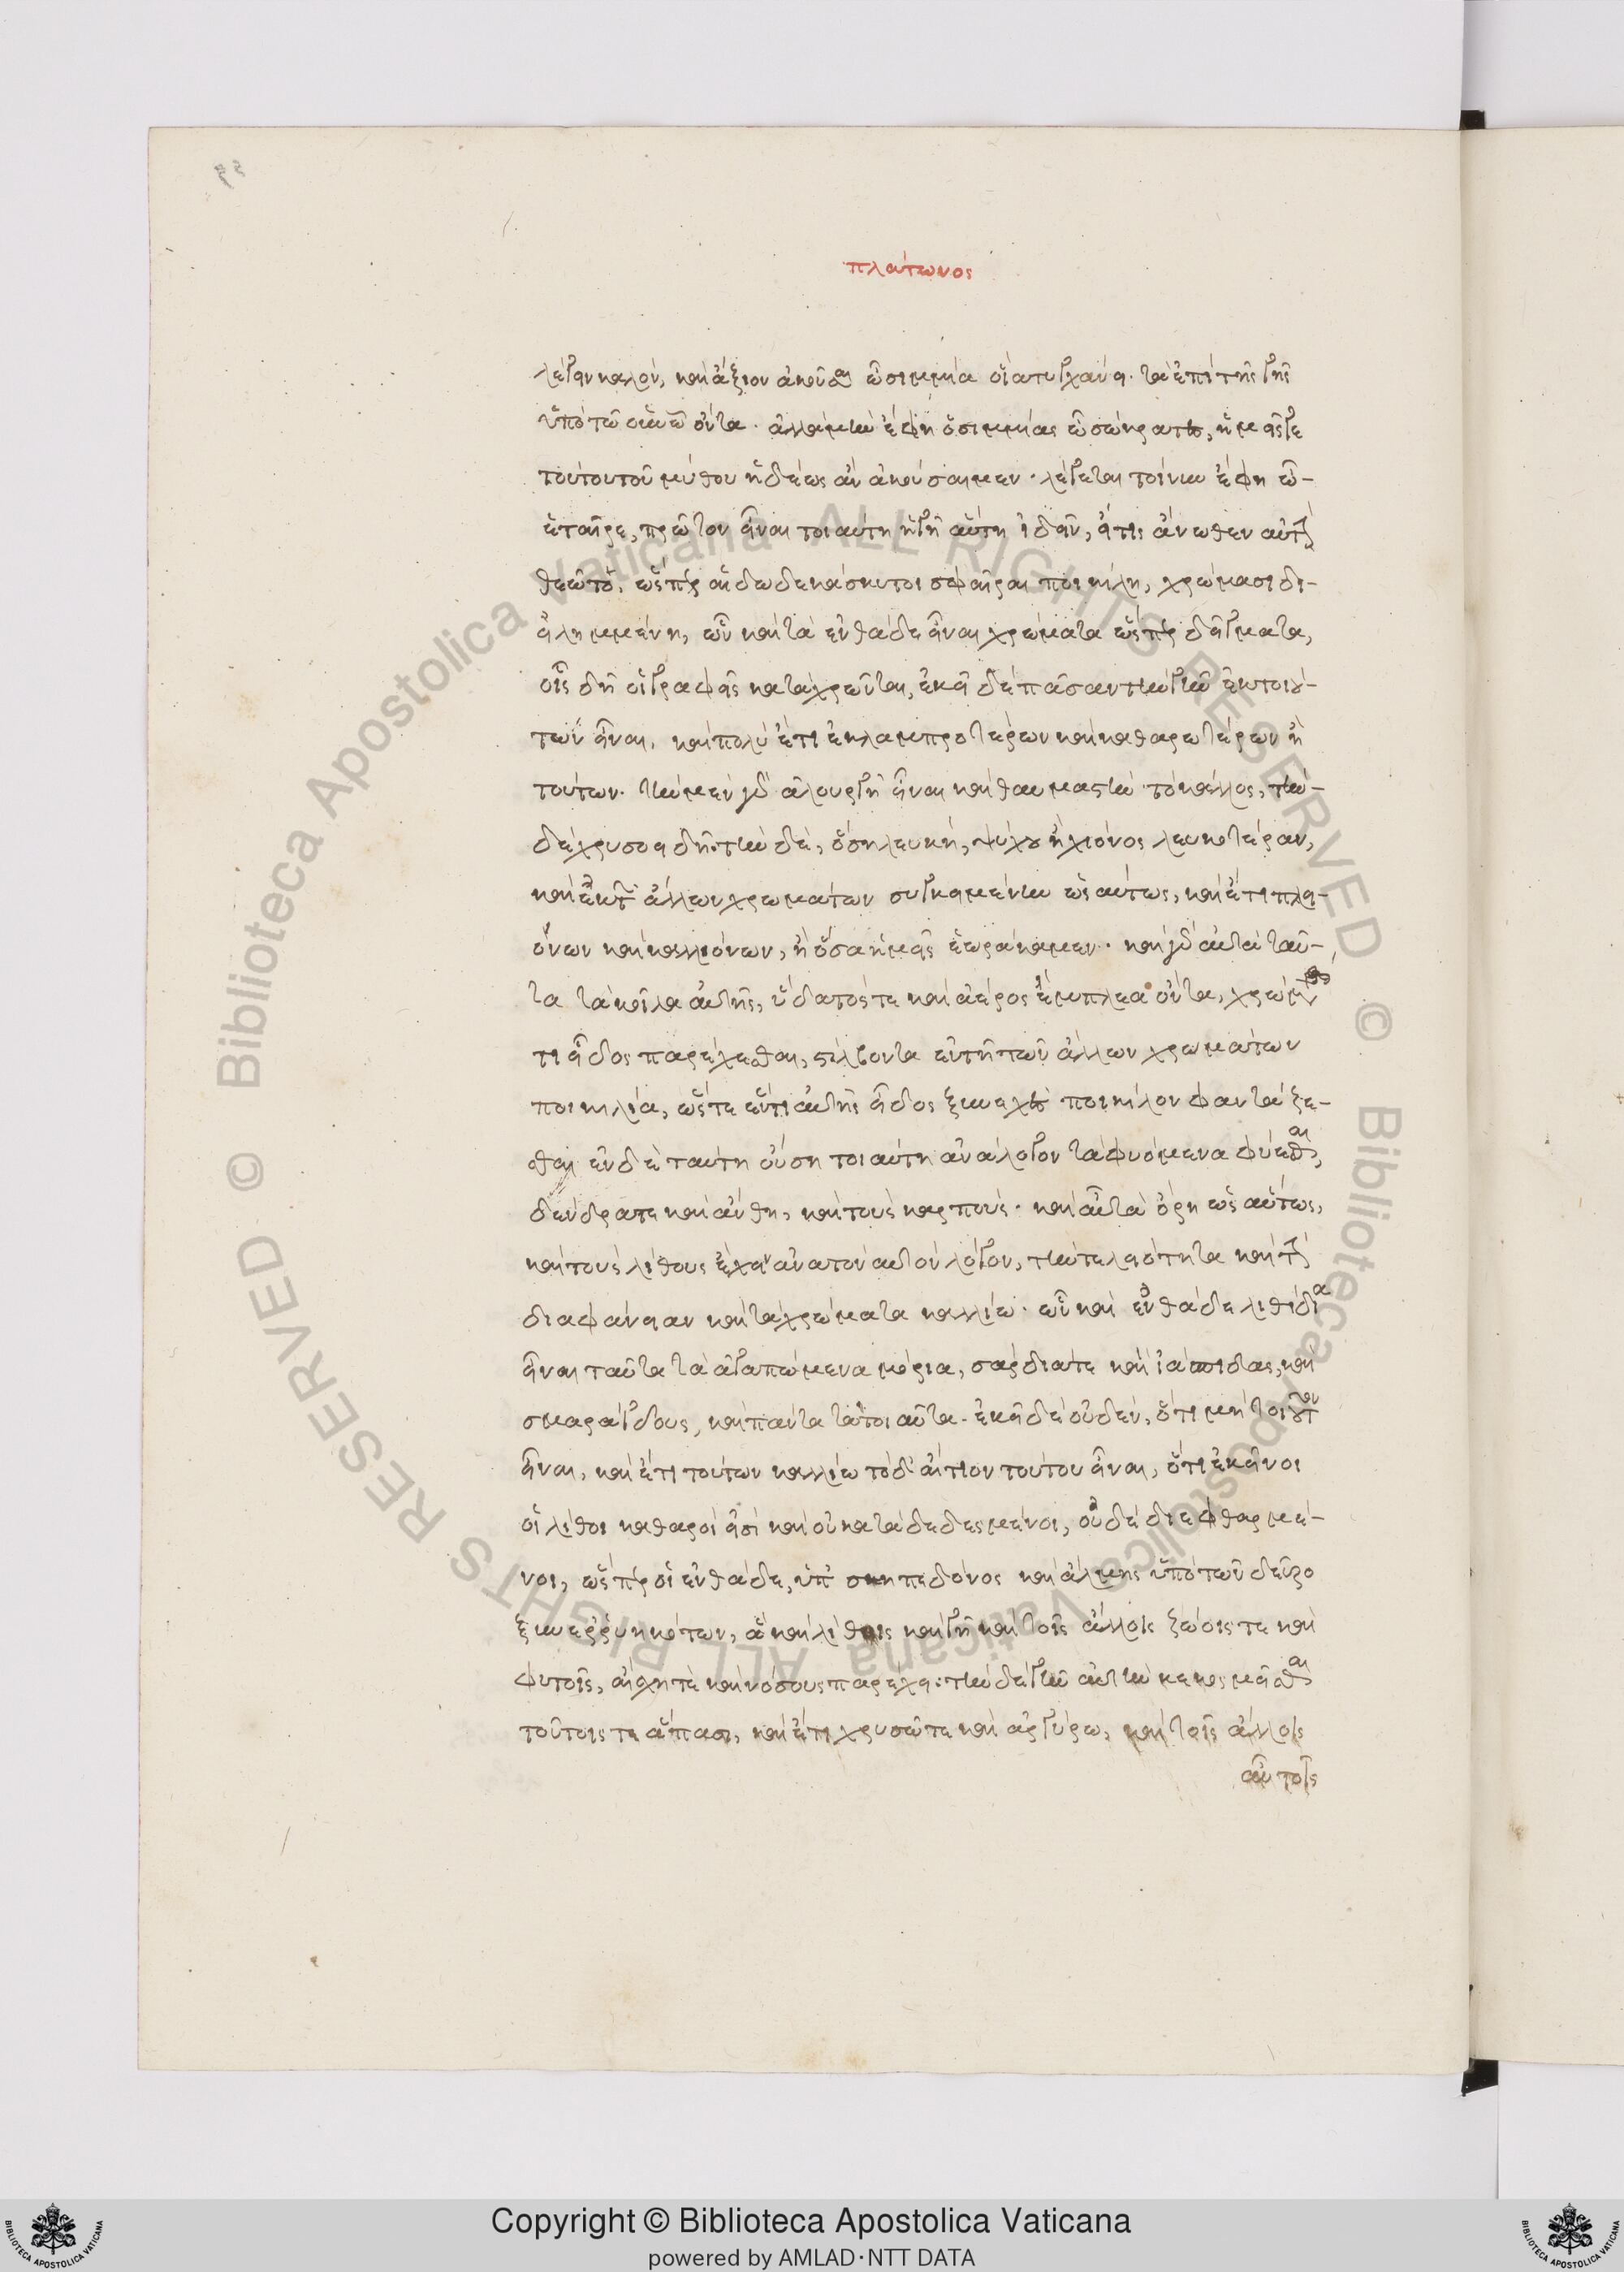 πλάτωνος
λέγειν καλόν, καὶ ἄξιον ἀκοῦσαι ὦ σιμμία οἷα τυγχάνει τὰ ἐπὶ τῆς γῆς
ὑπὸ τῶ οὐνῶ ὄντα · ἀλλὰ μὴν ἔφη ὁ σιμμίας ὦ σώκρατες, ἡμεῖς γε
τούτου τοῦ μύθου ἡδέως ἂν ἀκούσαιμεν · λέγεται τοίνυν ἔφη ὦ-
ἑταῖρε, πρῶτον εἶναι τοιαύτη ἡ γῆ αὕτη ἰδεῖν, εἴ τις ἄνωθεν αὐτὴν
θεῷτο, ὥσπερ αἱ δωδεκάσκυτοι σφαῖραι ποικίλη, χρώμασι δι-
ειλημμένη, ὧν καὶ τὰ ἐνθάδε εἶναι χρώματα ὥσπερ δείγματα,
οἷς δὴ οἱ γραφεῖς καταχρῶνται, ἐκεῖ δὲ πᾶσαν τὴν γῆν ἐκ τοιού-
των εἶναι, καὶ πολὺ ἔτι ἐκ λαμπροτέρων καὶ καθαρωτέρων ἢ
τούτων · τὴν μὲν γὰρ ἁλουργῆ εἶναι καὶ θαυμαστὴν τὸ κάλλος, τὴν-
δὲ χρυσοειδῆ· τὴν δὲ, ὅση λευκή, γύψου ἢ χιόνος λευκοτέραν,
καὶ ἐκ τῶν ἄλλων χρωμάτων συγκειμένην ὡσαύτως, καὶ ἔτι πλει-
όνων καὶ καλλιόνων, ἢ ὅσα ἡμεῖς ἑωράκαμεν · καὶ γὰρ αὐτὰ ταῦ-
τα τὰ κοῖλα αὐτῆς, ὕδατός τε καὶ ἀέρος ἔμπλεα ὄντα, χρώματος
τι εἶδος παρέχεσθαι, στίλβοντα ἐν τῆ τῶν ἄλλων χρωμάτων
ποικιλία, ὥστε ἕν τι αὐτῆς εἶδος ξυνεχὲς ποικίλον φαντάζε-
σθαι ἐν δὲ ταύτη οὔση τοιαύτη ἀνάλογον τὰ φυόμενα φύεσθαι,
δένδρα τε καὶ ἄνθη, καὶ τοὺς καρπούς · καὶ αὖ τὰ ὄρη ὡσαύτως,
καὶ τοὺς λίθους ἔχειν ἀνὰ τὸν αὐτὸν λόγον, τήν τε λειότητα καὶ τὴν
διαφάνειαν καὶ τὰ χρώματα καλλίω · ὧν καὶ ἐνθάδε λιθίδια
εἶναι ταῦτα τὰ ἀγαπώμενα μόρια, σάρδιά τε καὶ ἰάσπιδας, καὶ
σμαράγδους, καὶ πάντα τὰ τοιαῦτα · ἐκεῖ δὲ οὐδέν, ὅτι μὴ τοιοῦτον
εἶναι, καὶ ἔτι τούτων καλλίω τὸ δ' αἴτιον τούτου εἶναι, ὅτι ἐκεῖνοι
οἱ λίθοι καθαροί εἰσι καὶ οὐ κατὰδεδεσμένοι, οὐδὲ διεφθαρμέ-
νοι, ὥσπερ οἱ ἐνθάδε, ὑπὸ σηπεδόνος καὶ ἅλμης ὑπὸ τῶν δεῦρο
ξυνερρυηκότων, ἃ καὶ λίθοις καὶ γῆ καὶ τοῖς ἄλλοις ζώοις τε καὶ
φυτοῖς, αἴσχη τὲ καὶ νόσους παρέχει· τὴν δὲ γῆν αὐτὴν κεκοσμῆσθαι
τούτοις τε ἅπασι, καὶ ἔτι χρυσῶ τε καὶ ἀργύρω, καὶ τοῖς ἄλλοις
αὖ τοῖς
© Biblioteca Apostolica Vaticana ALL RIGHTS RESERVED
© Biblioteca Apostolica Vaticana ALL RIGHTS RESERVED
BIBLIOTECA APOSTOLICA VATICANA
Copyright © Biblioteca Apostolica Vaticana
powered by AMLAD·NTT DATA
BIBLIOTECA APOSTOLICA VATICANA